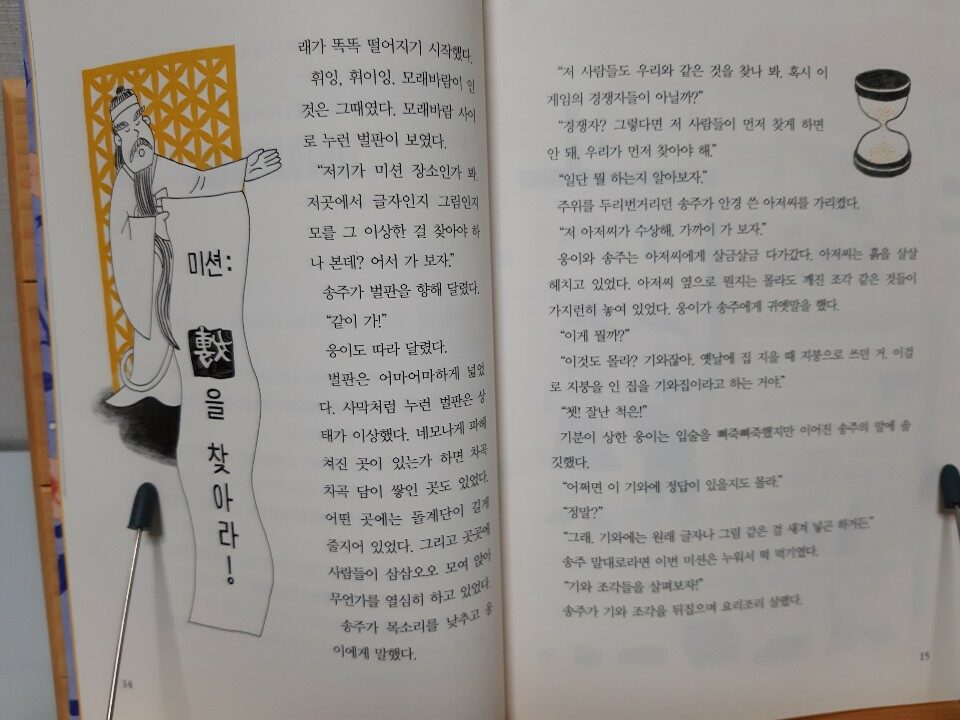 미션:
을
찾
아
라!
래가 똑똑 떨어지기 시작했다.
휘잉, 휘이잉. 모래바람이 인
것은 그때였다. 모래바람 사이
로 누런 벌판이 보였다.
“저기가 미션 장소인가 봐.
저곳에서 글자인지 그림인지
모를 그 이상한 걸 찾아야 하
나 본데? 어서 가 보자.”
송주가 벌판을 향해 달렸다.
“같이 가!”
웅이도 따라 달렸다.
벌판은 어마어마하게 넓었
다. 사막처럼 누런 벌판은 상
태가 이상했다. 네모나게 파헤
쳐진 곳이 있는가 하면 차곡
차곡 담이 쌓인 곳도 있었다.
어떤 곳에는 돌계단이 길게
줄지어 있었다. 그리고 곳곳에
사람들이 삼삼오오 모여 앉아
무언가를 열심히 하고 있었다.
송주가 목소리를 낮추고 웅
이에게 말했다.
14
“저 사람들도 우리와 같은 것을 찾나 봐. 혹시 이
게임의 경쟁자들이 아닐까?”
“경쟁자? 그렇다면 저 사람들이 먼저 찾게 하면
안 돼. 우리가 먼저 찾아야 해.”
“일단 뭘 하는지 알아보자.”
주위를 두리번거리던 송주가 안경 쓴 아저씨를 가리켰다.
“저 아저씨가 수상해. 가까이 가 보자.”
웅이와 송주는 아저씨에게 살금살금 다가갔다. 아저씨는 흙을 살살
헤치고 있었다. 아저씨 옆으로 뭔지는 몰라도 깨진 조각 같은 것들이
가지런히 놓여 있었다. 웅이가 송주에게 귀엣말을 했다.
“이게 뭘까?”
“이것도 몰라? 기와잖아. 옛날에 집 지을 때 지붕으로 쓰던 거. 이걸
로 지붕을 인 집을 기와집이라고 하는 거야.”
“쳇! 잘난 척은!”
기분이 상한 웅이는 입술을 삐죽삐죽했지만 이어진 송주의 말에 솔
깃했다.
“어쩌면 이 기와에 정답이 있을지도 몰라.”
“정말?”
“그래. 기와에는 원래 글자나 그림 같은 걸 새겨 넣곤 하거든.”
송주 말대로라면 이번 미션은 누워서 떡 먹기였다.
“기와 조각들을 살펴보자!”
송주가 기와 조각을 뒤집으며 요리조리 살폈다.
15